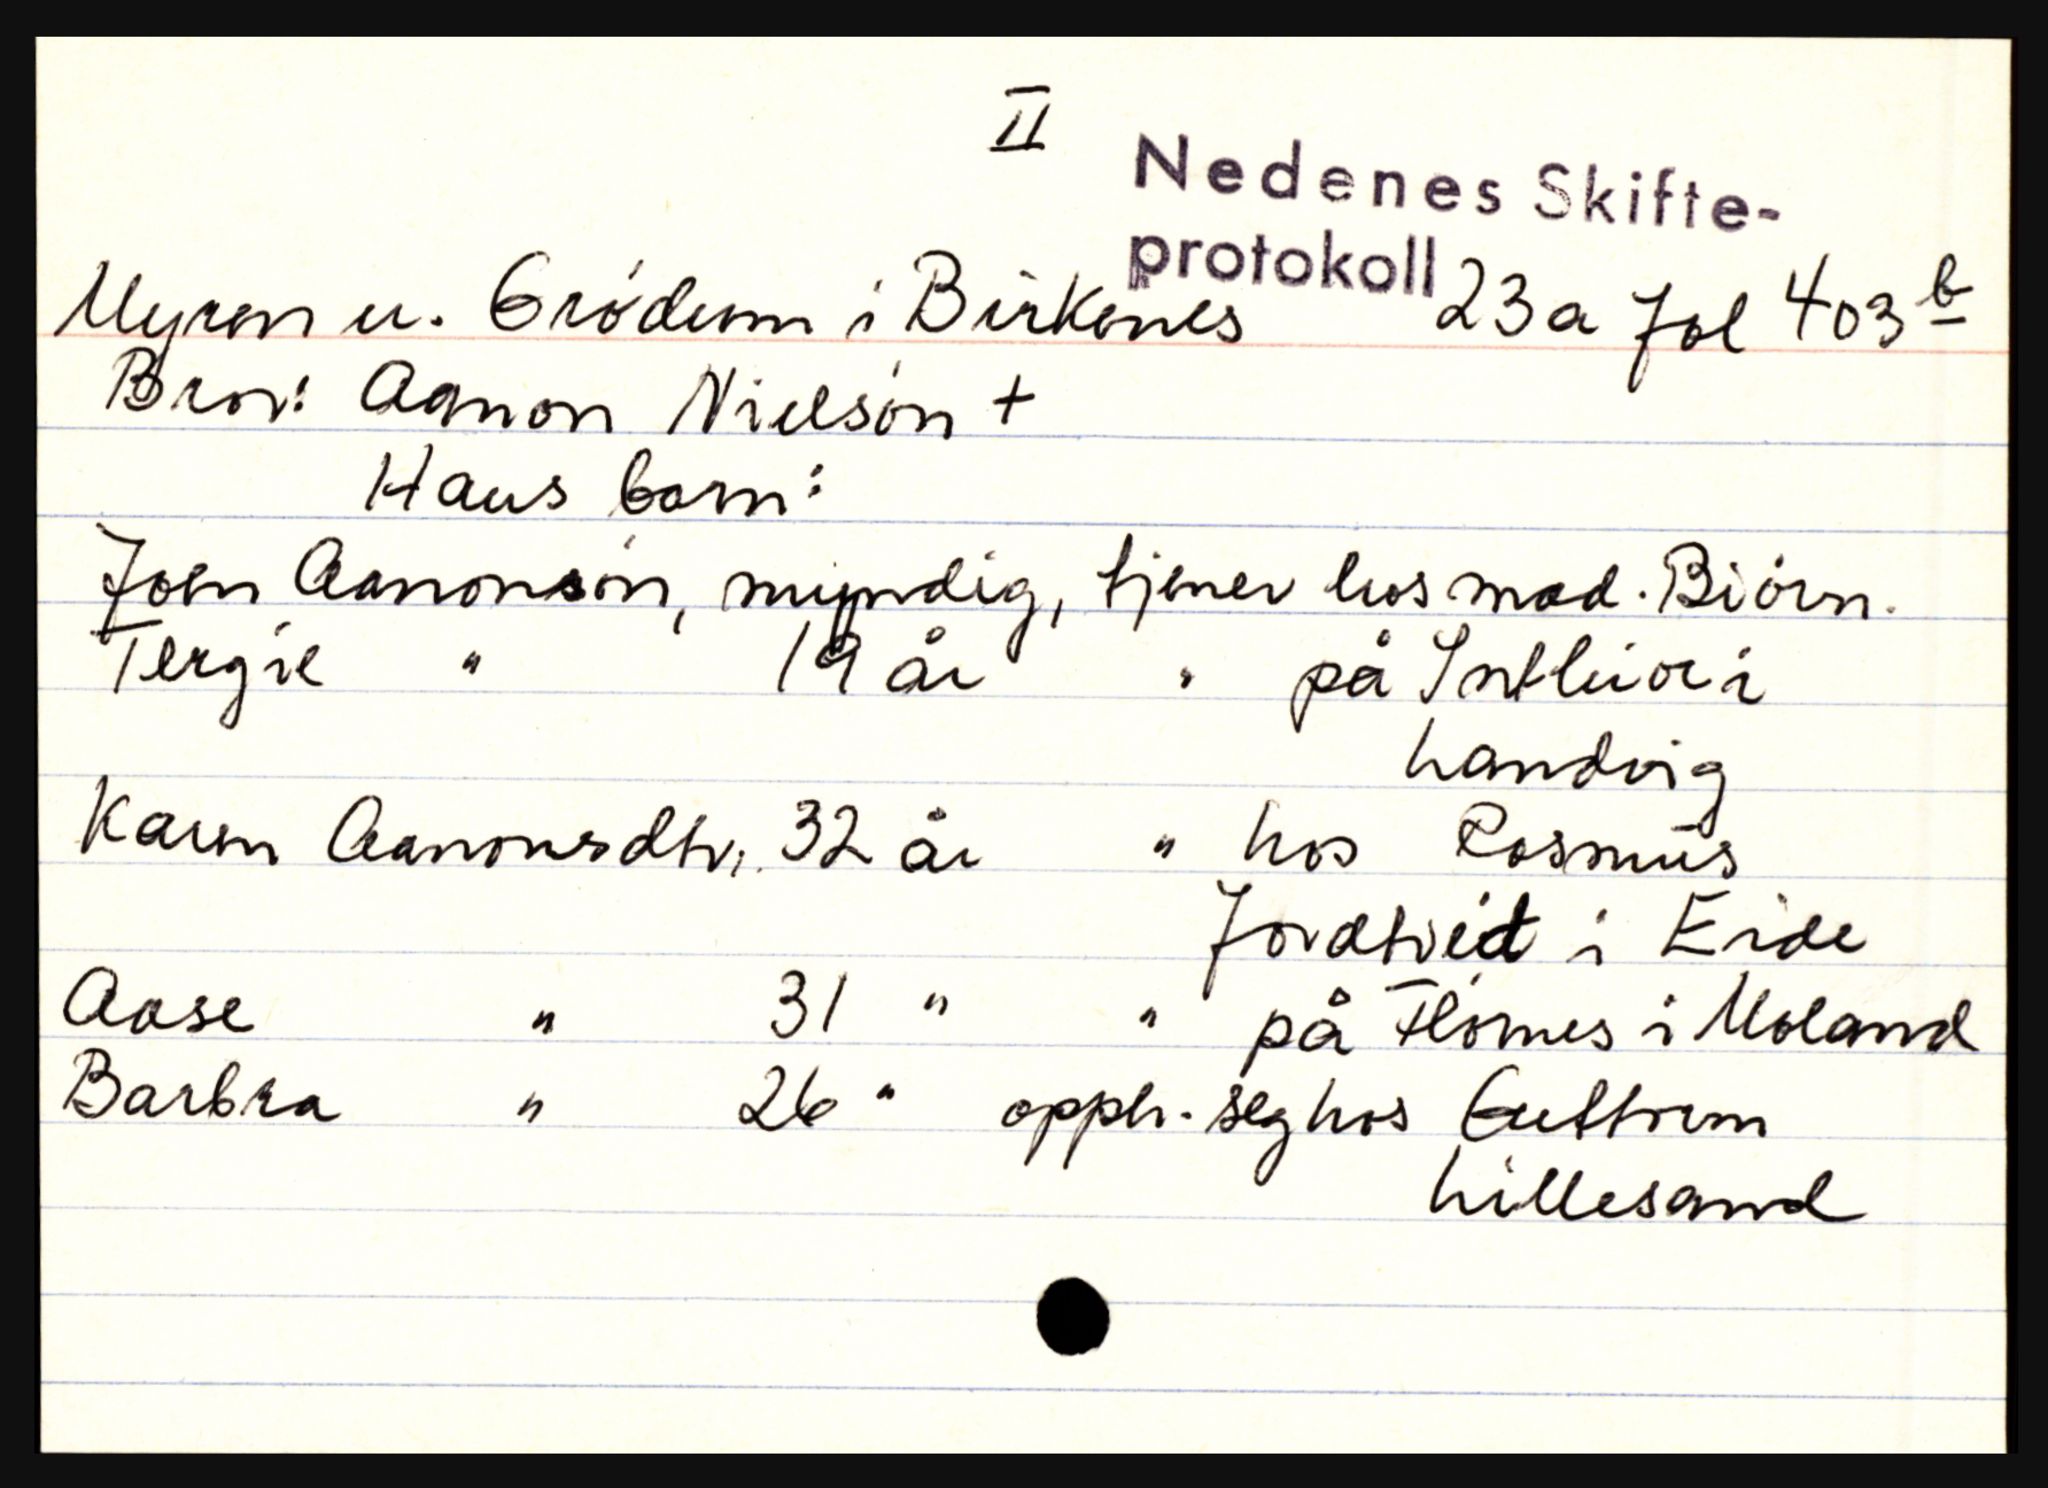 II
Nedenes Skifte-
protokoll
Myren u. Grødum i Birkenes 23a Fol 403b
Bror: Aanon Nielsøn +
Hans barn:
Joen Aanonsøn, myndig, tjener hos mad. Biørn.
Tergie " 19 år " på i
Landvig
Karen Aanonsdtr. 32 år " hos Rasmus
Jordtveit i Eide
Aase " 31 " " på i Moland
Barbra " 26 " opph. seg hos Guttorm
Lillesand